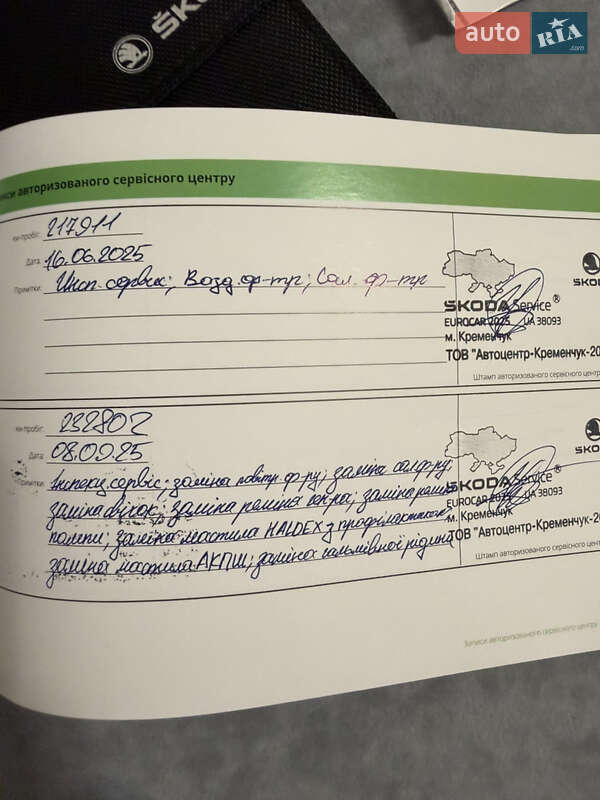 ŠKO
auto RIA.com
писи авторизованого сервісного центру
км-пробіг: 217911
Дата: 16.06.2025
Примітки: Инсп. сервіс; Возд. ф-тр; Сал. ф-тр
ŠKODA Service®
EUROCAR 2025 UA 38093
м. Кременчук
ТОВ "Автоцентр-Кременчук-20
Штамп авторизованого сервісного центр
ŠKO
км-пробіг: 232802
Дата: 08.09.25
Примітки: Інспекц. сервіс; заміна повітр ф-ру; заміна сал ф-ру;
заміна свічок; заміна ременя
полепи; заміна мастила HALDEX з профілактикою;
заміна мастила АКПП; заміна гальмівної рідини
ŠKODA Service®
EUROCAR UA 38093
м. Кременчук
ТОВ "Автоцентр-Кременчук-20
Штамп авторизованого сервісного центру
ŠKO
Записи авторизованого сервісного центру